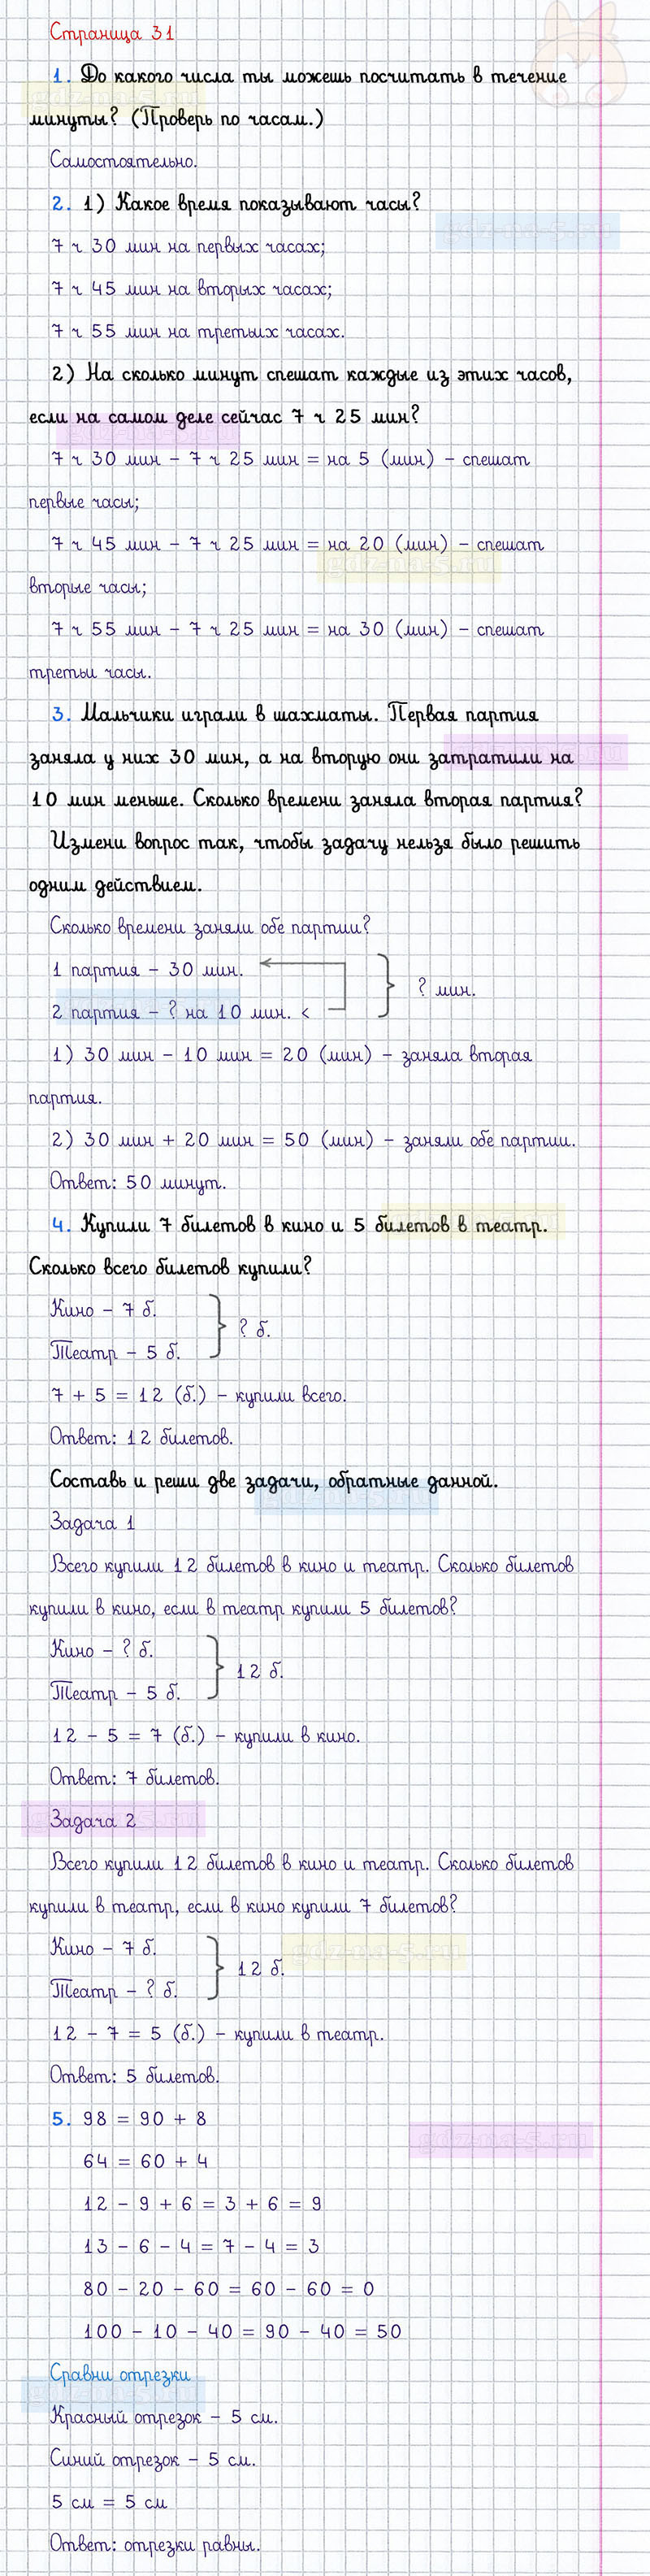 Страница 31
1. До какого числа ты можешь посчитать в течение
минуты? (Проверь по часам.)
Самостоятельно.
2. 1) Какое время показывают часы?
gdz-na-5.ru
7 ч 30 мин на первых часах;
7 ч 45 мин на вторых часах;
7 ч 55 мин на третьих часах.
2) На сколько минут спешат каждые из этих часов,
если на самом деле сейчас 7 ч 25 мин?
7 ч 30 мин – 7 ч 25 мин = на 5 (мин) – спешат
первые часы;
7 ч 45 мин – 7 ч 25 мин = на 20 (мин) – спешат
gdz-na-5.ru
вторые часы;
7 ч 55 мин – 7 ч 25 мин = на 30 (мин) – спешат
третьи часы.
3. Мальчики играли в шахматы. Первая партия
заняла у них 30 мин, а на вторую они затратили на
10 мин меньше. Сколько времени заняла вторая партия?
Измени вопрос так, чтобы задачу нельзя было решить
одним действием.
Сколько времени заняли обе партии?
1 партия – 30 мин.
? мин.
2 партия – ? на 10 мин. <
1) 30 мин – 10 мин = 20 (мин) – заняла вторая
партия.
2) 30 мин + 20 мин = 50 (мин) – заняли обе партии.
Ответ: 50 минут.
4. Купили 7 билетов в кино и 5 билетов в театр.
Сколько всего билетов купили?
Кино – 7 б.
? б.
Театр – 5 б.
7 + 5 = 12 (б.) – купили всего.
Ответ: 12 билетов.
Составь и реши две задачи, обратные данной.
Задача 1
Всего купили 12 билетов в кино и театр. Сколько билетов
купили в кино, если в театр купили 5 билетов?
Кино – ? б.
12 б.
Театр – 5 б.
12 – 5 = 7 (б.) – купили в кино.
Ответ: 7 билетов.
Задача 2
Всего купили 12 билетов в кино и театр. Сколько билетов
купили в театр, если в кино купили 7 билетов?
Кино – 7 б.
gdz-na-5.ru
12 б.
Театр – ? б.
12 – 7 = 5 (б.) – купили в театр.
Ответ: 5 билетов.
5. 98 = 90 + 8
gdz-na-5.ru
64 = 60 + 4
12 – 9 + 6 = 3 + 6 = 9
13 – 6 – 4 = 7 – 4 = 3
80 – 20 – 60 = 60 – 60 = 0
100 – 10 – 40 = 90 – 40 = 50
Сравни отрезки
Красный отрезок – 5 см.
Синий отрезок – 5 см.
5 см = 5 см
Ответ: отрезки равны.